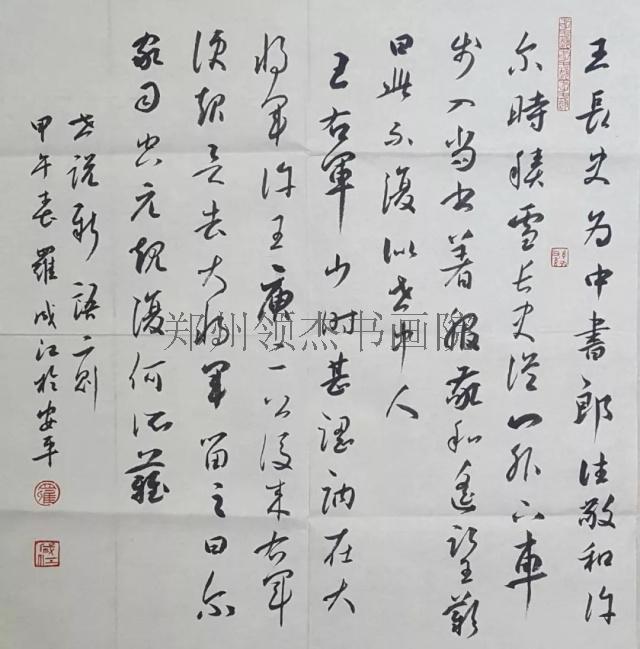 王長史为中書郎往敬和许
尔時積雪长史從门外下車
步入尚书著服敬和遥望歎
曰此不復似世中人
王右軍少时甚澀訥在大
将军许王庾二公後来右军
便起去大将军留之曰尔
家司空元規復何所難
世说新語二则
甲午春羅成江於安平
郑州领杰书画院